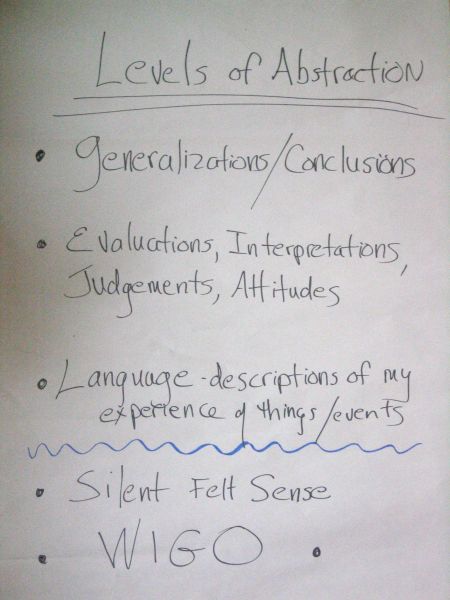 Levels of Abstraction
• Generalizations/Conclusions
• Evaluations, Interpretations,
Judgements, Attitudes
• Language-descriptions of my
experience of things/events
• Silent Felt Sense
• WIGO •